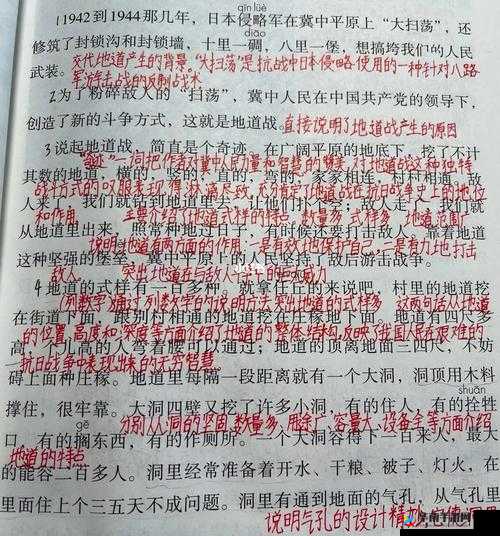 qīn lüè
1942到1944那几年，日本侵略军在冀中平原上“大扫荡”，还
diāo
修筑了封锁沟和封锁墙，十里一碉，八里一堡，想搞垮我们的人民
武装。交代地道产生的背景。“大扫荡”是抗战中日本侵略使用的一种针对八路
军游击战的反制战术
2为了粉碎敌人的“扫荡”，冀中人民在中国共产党的领导下，
创造了新的斗争方式，这就是地道战。直接说明了地道战产生的原因
3说起地道战，简直是个奇迹。在广阔平原的地底下，挖了不计
“奇迹”一词把作者对冀中人民力量和智慧的赞美，对地道战这种独特
其数的地道，横的，竖的，直的，弯的，家家相连，村村相通。敌
战斗方式的叹服表现得淋漓尽致，充分肯定了地道战在抗日战争史上的地位
人来了，我们就钻到地道里去，让他们扑个空；敌人走了，我们就
和作用 主要介绍了地道式样的特点，数量多 式样多 地道范围广
从地道里出来，照常种地过日子，有时候还要打击敌人。靠着地道
说明地道有两方面的作用：一是有效地保护自己，二是有力地打击
这种坚强的堡垒，冀中平原上的人民坚持了敌后游击战争。
敌人。 突出地道在与敌人斗争中的巨大威力
4地道的式样有一百多种。就拿任丘的来说吧，村里的地道挖
(列数字)通过列数字的说明方法突出地道的式样多 这两句话从地道
在街道下面，跟别村相通的地道挖在庄稼地下面。地道有四尺多
的位置，高度和深度等方面介绍了地道的整体结构，反映了我国人民在艰难的
高，个儿高的人弯着腰可以通过；地道的顶离地面三四尺，不妨
抗日战争中表现出来的无穷智慧
碍上面种庄稼。地道里每隔一段距离就有一个大洞，洞顶用木料
shuān
撑住，很牢靠。大洞四壁又挖了许多小洞，有的住人，有的拴牲
gē
分别从洞的坚固，数量多，用途广，容量大，设备全等方面介绍
口，有的搁东西，有的作厕所。一个大洞容得下一百来人，最大
地道的特点
的能容二百多人。洞里经常准备着开水、干粮、被子、灯火，在
里面住上个三五天不成问题。洞里有通到地面的气孔，从气孔里
说明气孔的设计精妙